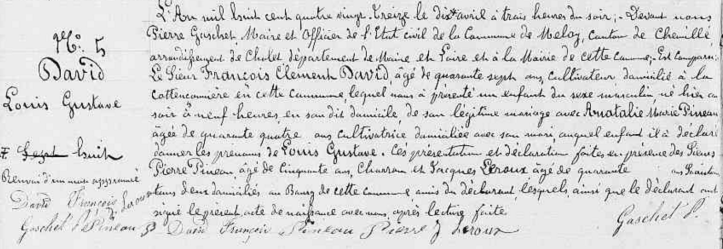 No. 5
David
Louis Gustave
≠ Sept huit
Renvoi d'un mot approuvé
David François Leroux
Gaschet P. Pineau P
L'An mil huit cent quatre vingt-treize le dix avril à trois heures du soir; - Devant nous
Pierre Gaschet Maire et Officier de l'Etat civil de la Commune de Melay, Canton de Chemillé,
arrondissement de Cholet département de Maine et Loire et à la Mairie de cette commune; - Est comparu:
Le Sieur François Clément David, âgé de quarante sept ans, Cultivateur domicilié à la
en cette Commune, lequel nous a présenté un enfant du sexe masculin, né hier au
soir à neuf heures, en son dit domicile, de son légitime mariage avec Anatalie Marie Pineau
âgée de quarante quatre ans Cultivatrice domiciliée avec son mari, auquel enfant il a déclaré
donner les prénoms de Louis Gustave. Ces présentation et déclaration faites en présence des Sieurs
Pierre Pineau, âgé de cinquante ans, Charron et Jacques Leroux âgé de quarante ans
tous deux domiciliés au Bourg de cette commune amis du déclarant, lesquels, ainsi que le déclarant ont
signé le présent acte de naissance avec nous, après lecture faite
David François Pineau Pierre J Leroux
Gaschet P.